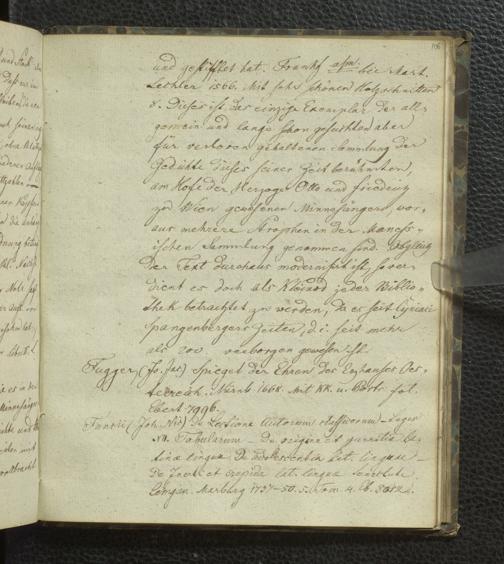 106
und gestifftet hat. Frankf a/m. bei Mart.
Lechler 1566. Mit sehr schönen Holzschnitten
8. Dieses ist das einzige Exemplar der all=
gemein und lange schon gesuchten aber
für verloren gehaltenen Sammlung der
Gedichte dieses seiner Zeit berühmten,
am Hofe der Herzoge Otto und Friedrich
zu Wien gewesenen Minnesängers, wor=
aus mehrere Strophen in der Maness=
ischen Sammlung genommen sind. Obgleich
der Text durchaus modernisirt ist, so ver=
dient es doch als Kleinod jeder Biblio=
thek betrachtet zu werden, da es seit Cyriaci
Spangenbergers Zeiten, d. i. seit mehr
als 200 verborgen gewesen ist.
Fugger, (Jo. Jac) Spiegel der Ehren des Erzhauses Oes=
terreich. Nürnb. 1668. Mit KK. u. Portr. fol.
Ebert 7996.
Funcii (Joh. Nic) de Lectione Autorum classicorum – Leges
XII. Tabularum – De origine et pueritia la=
tinae linguae. De adolescentia lat. linguae –
De lat. linguae senectute.
Lemgov. Marburg 1737–50. 5. Tom. 4.